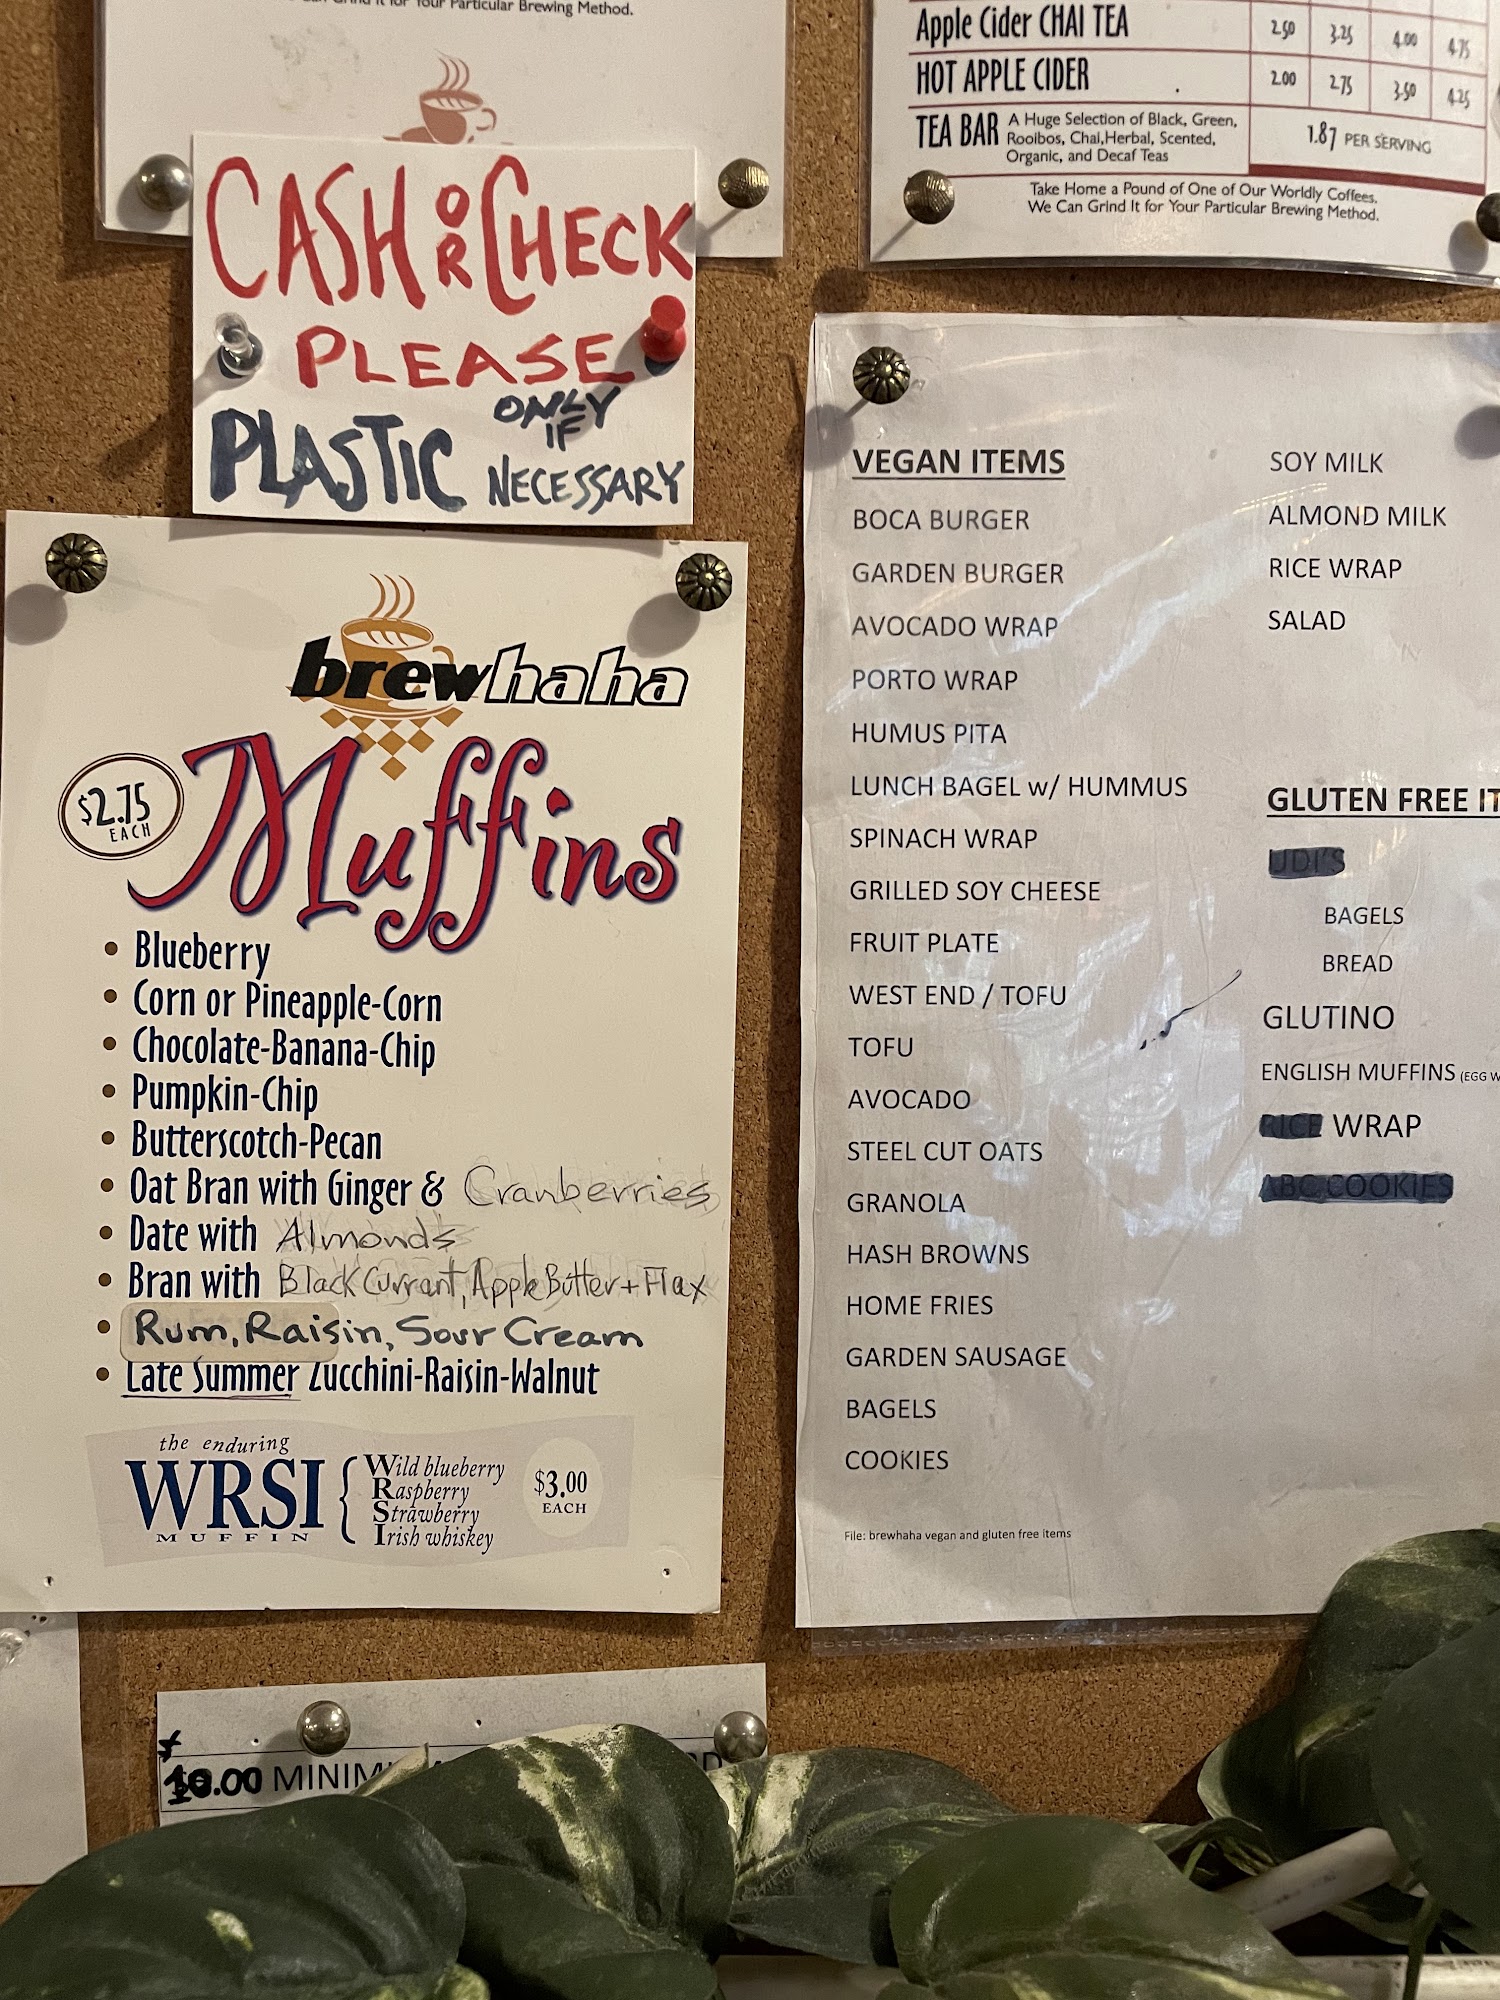 Grind It for Your Particular Brewing Method.
Apple Cider CHAI TEA 2.50 3.25 4.00 4.75
HOT APPLE CIDER 2.00 2.75 3.50 4.25
TEA BAR A Huge Selection of Black, Green,
Rooibos, Chai, Herbal, Scented,
Organic, and Decaf Teas
1.87 PER SERVING
Take Home a Pound of One of Our Worldly Coffees.
We Can Grind It for Your Particular Brewing Method.
CASH OR CHECK
PLEASE
PLASTIC ONLY IF NECESSARY
brewhaha
Muffins
$2.75
EACH
• Blueberry
• Corn or Pineapple-Corn
• Chocolate-Banana-Chip
• Pumpkin-Chip
• Butterscotch-Pecan
• Oat Bran with Ginger & Cranberries
• Date with Almonds
• Bran with Black Currant, Apple Butter + Flax
• Rum, Raisin, Sour Cream
• Late Summer Zucchini-Raisin-Walnut
the enduring
WRSI
MUFFIN
Wild blueberry
Raspberry
Strawberry
Irish whiskey
$3.00
EACH
VEGAN ITEMS
BOCA BURGER
GARDEN BURGER
AVOCADO WRAP
PORTO WRAP
HUMUS PITA
LUNCH BAGEL w/ HUMMUS
SPINACH WRAP
GRILLED SOY CHEESE
FRUIT PLATE
WEST END / TOFU
TOFU
AVOCADO
STEEL CUT OATS
GRANOLA
HASH BROWNS
HOME FRIES
GARDEN SAUSAGE
BAGELS
COOKIES
File: brewhaha vegan and gluten free items
SOY MILK
ALMOND MILK
RICE WRAP
SALAD
GLUTEN FREE IT
UDI'S
BAGELS
BREAD
GLUTINO
ENGLISH MUFFINS (EGG W
RICE WRAP
ABC COOKIES